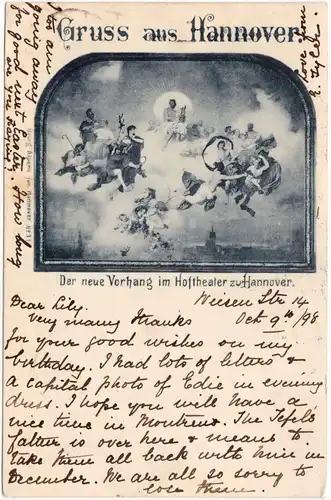 Gruss aus Hannover.
Der neue Vorhang im Hoftheater zu Hannover.
Wiesen Str 14
Dear Lily.
Oct 9th/98
Very many thanks
for your good wishes on my
birthday. I had lots of letters &
a capital photo of Edie in evening
dress. I hope you will have a
nice time in Montreux. The
father is over here & means to
take them all back with him in
December. We are all so sorry to
lose them.
going away
for good next Easter. How long
are you
your